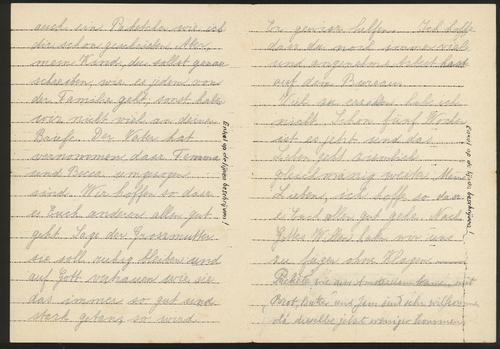 auch ein Paketchen wie ich
dir schon geschrieben. Aber,
mein Kind, du sollst genau
schreiben, wie es jedem von
der Familie geht, sonst habe
wir nicht viel an deinen
Briefe. Der Vater hat
vernommen dass Femma
und Decca umgezogen
sind. Wir hoffen so dass
es Euch anderen allen gut
geht. Sage der Grossmutter
sie soll ruhig bleiben und
auf Gott vertrauen wie sie
das immer so gut und
stark getan, so wird
Enkel op de lijnen beschrijven!
Er gewiss helfen. Ich hoffe
dass du noch immer viele
und angenehme Arbeit hast
auf dem Bureau.
Viel zu erzählen hab ich
nicht. Schon fünf Wochen
ist es jetzt und das
Leben geht ziemlich
gleichmässig weiter. Meine
Lieben, ich hoffe so dass
es Euch allen gut gehe. Nach
Gottes Willen haben wir uns
zu fügen ohne Klagen.
Pakete, wie aus Amsterdam kamen, mit
Brot, Butter und Jam sind sehr willkommen
da dieselbe jetzt weniger kommen.
Enkel op de lijnen beschrijven!